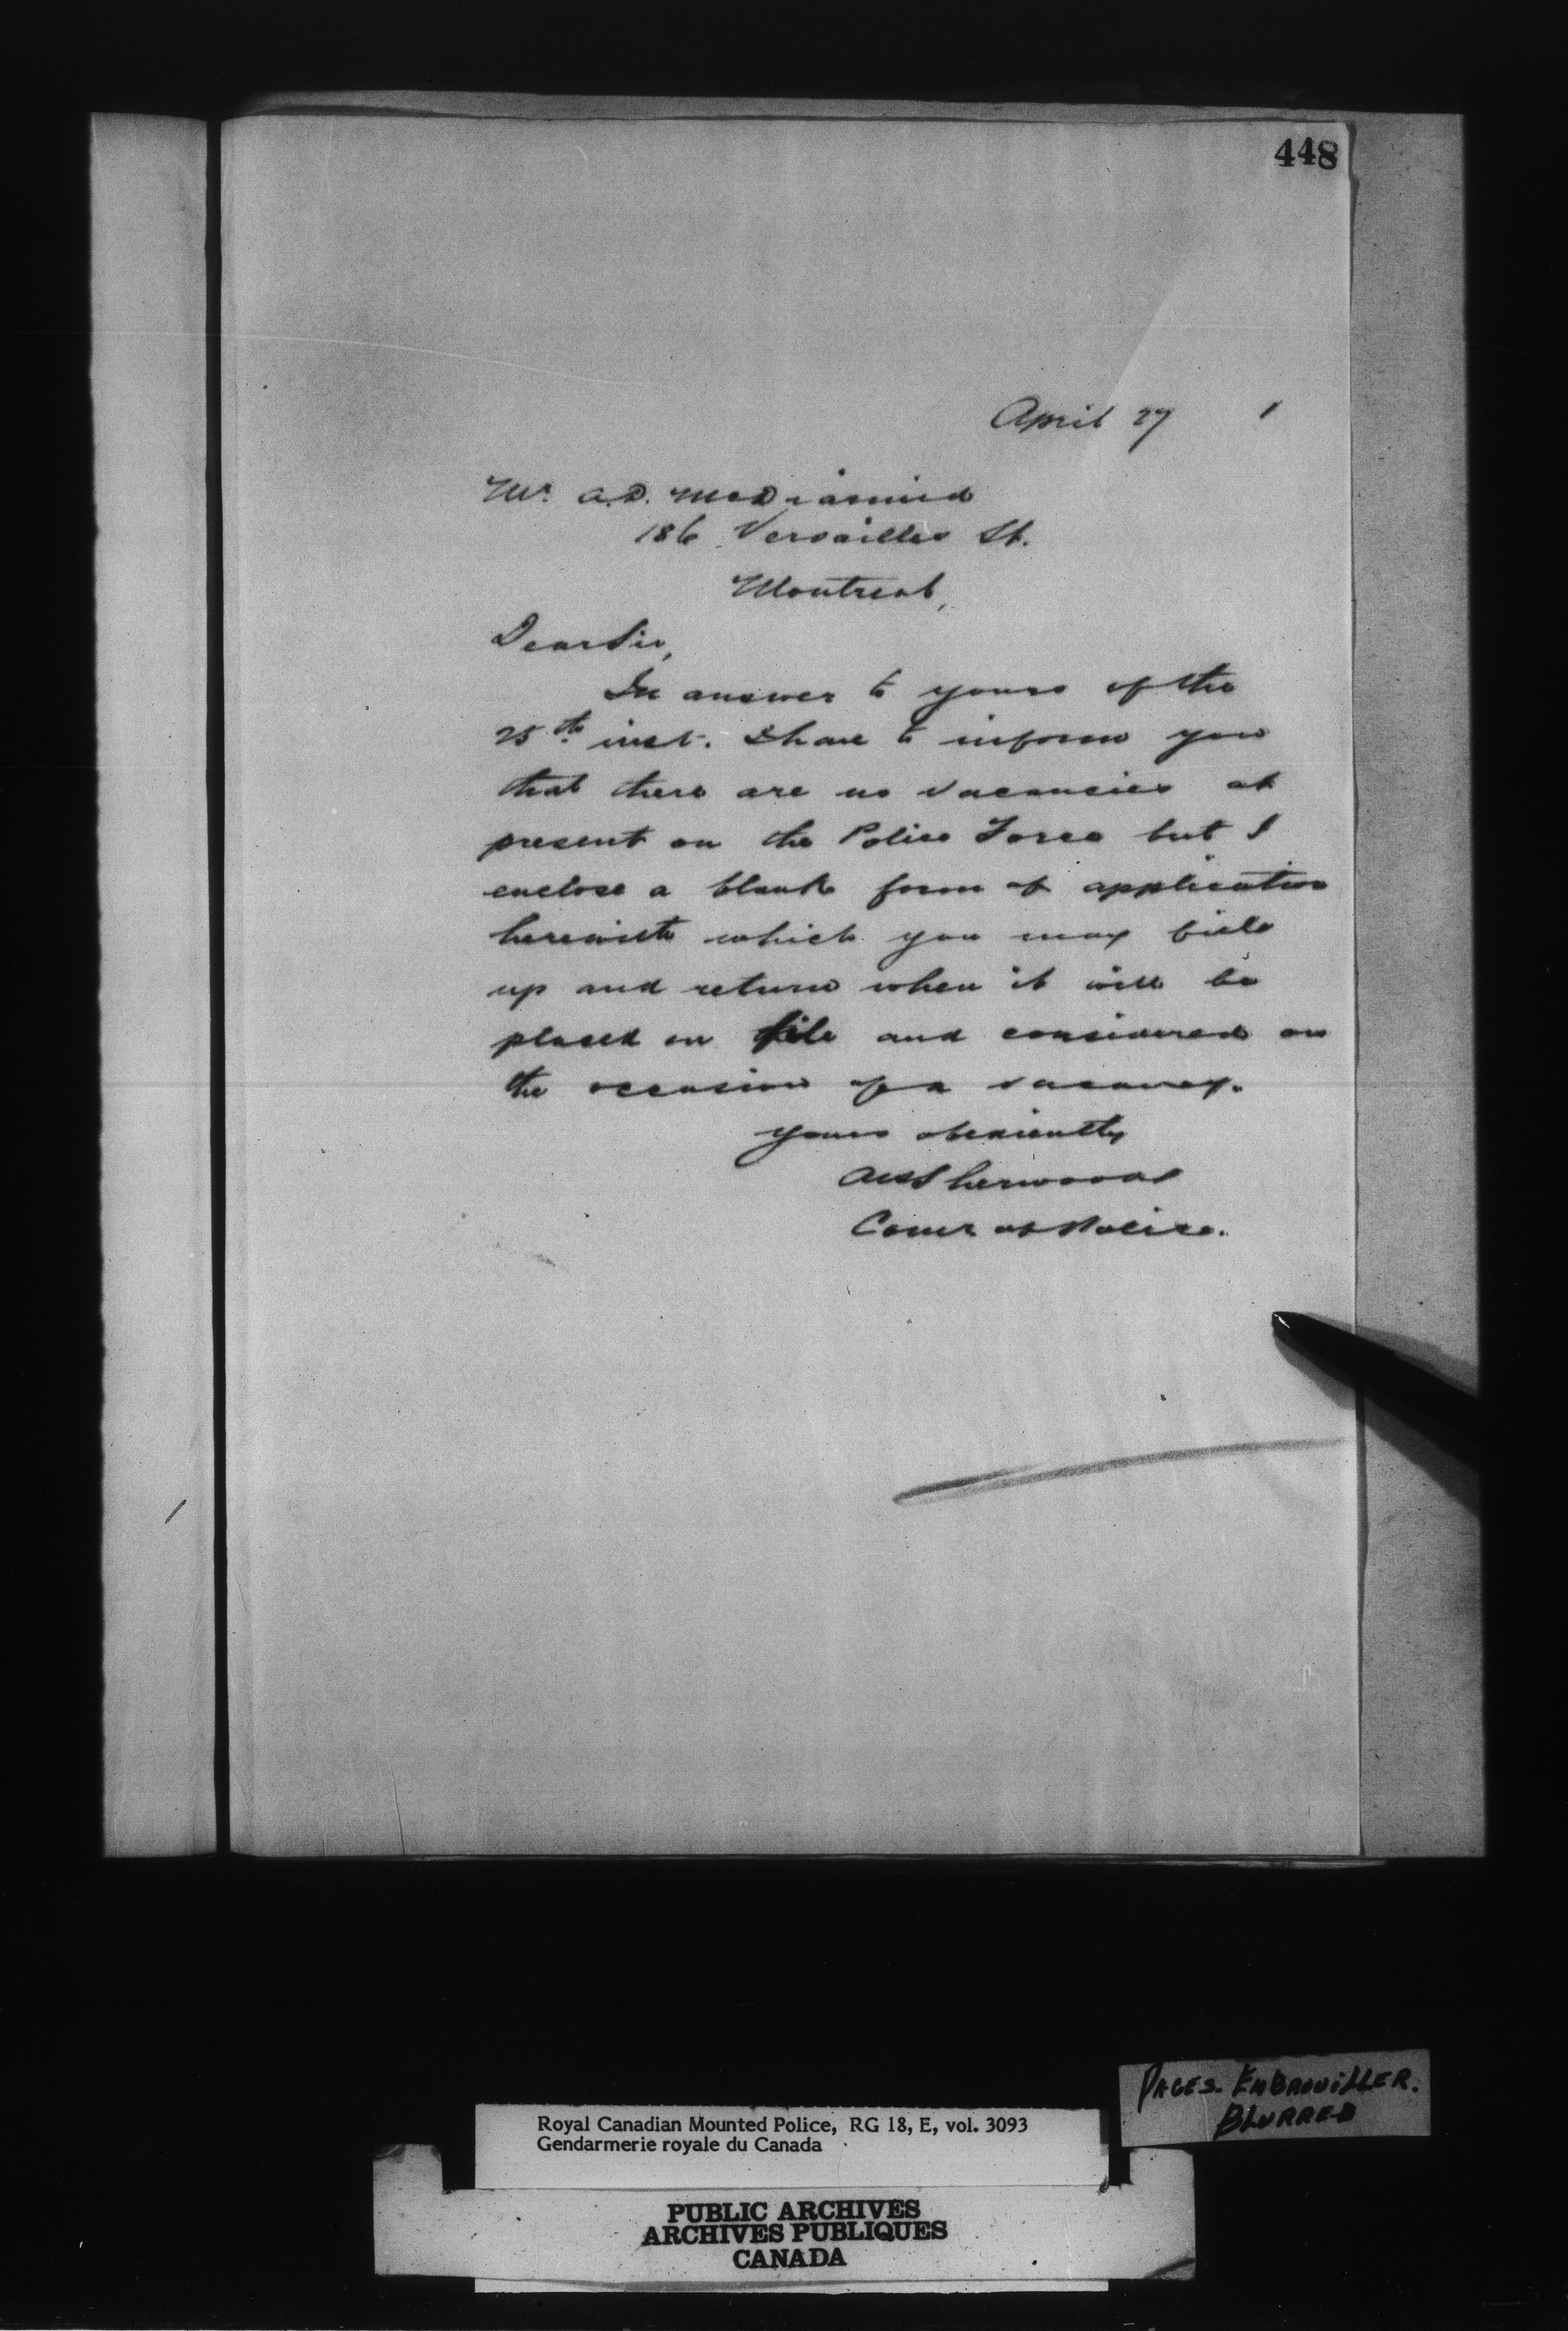 448
April 27 1
Mr. A.D. McDiarmid
186 Versailles St.
Montreal,
Dear Sir,
In answer to yours of the
25th inst. I have to inform you
that there are no vacancies at
present on the Police Force but I
enclose a blank form of application
herewith which you may fill
up and return when it will be
placed on file and considered on
the occasion of a vacancy.
Yours obediently
AP Sherwood
Comr of Police.
PAGES. EMBROUILLER.
BLURRED
Royal Canadian Mounted Police, RG 18, E, vol. 3093
Gendarmerie royale du Canada
PUBLIC ARCHIVES
ARCHIVES PUBLIQUES
CANADA